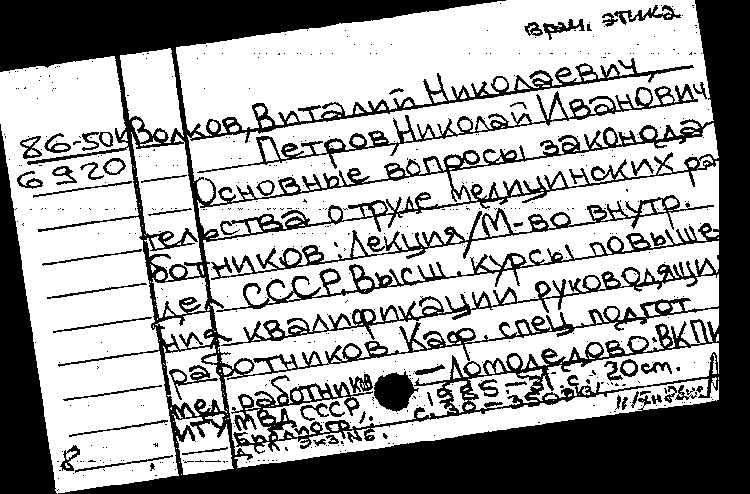 врач. этика
Волков, Виталий Николаевич,
86-50к
Петров, Николай Иванович
6920
Основные вопросы законода
тельства о труде медицинских ра
ботников: Лекция/М-во внутр.
дел СССР. Высш. курсы повыше
ния квалификации руководящи
работников. Каф. спец. подгот.
мед. работников — Домодедово: ВКПК
МВД СССР, 1985 - 31 с. 20 см.
Библиогр.: с. 30 - 350 экз.
Дсп. Экз. №6.
8